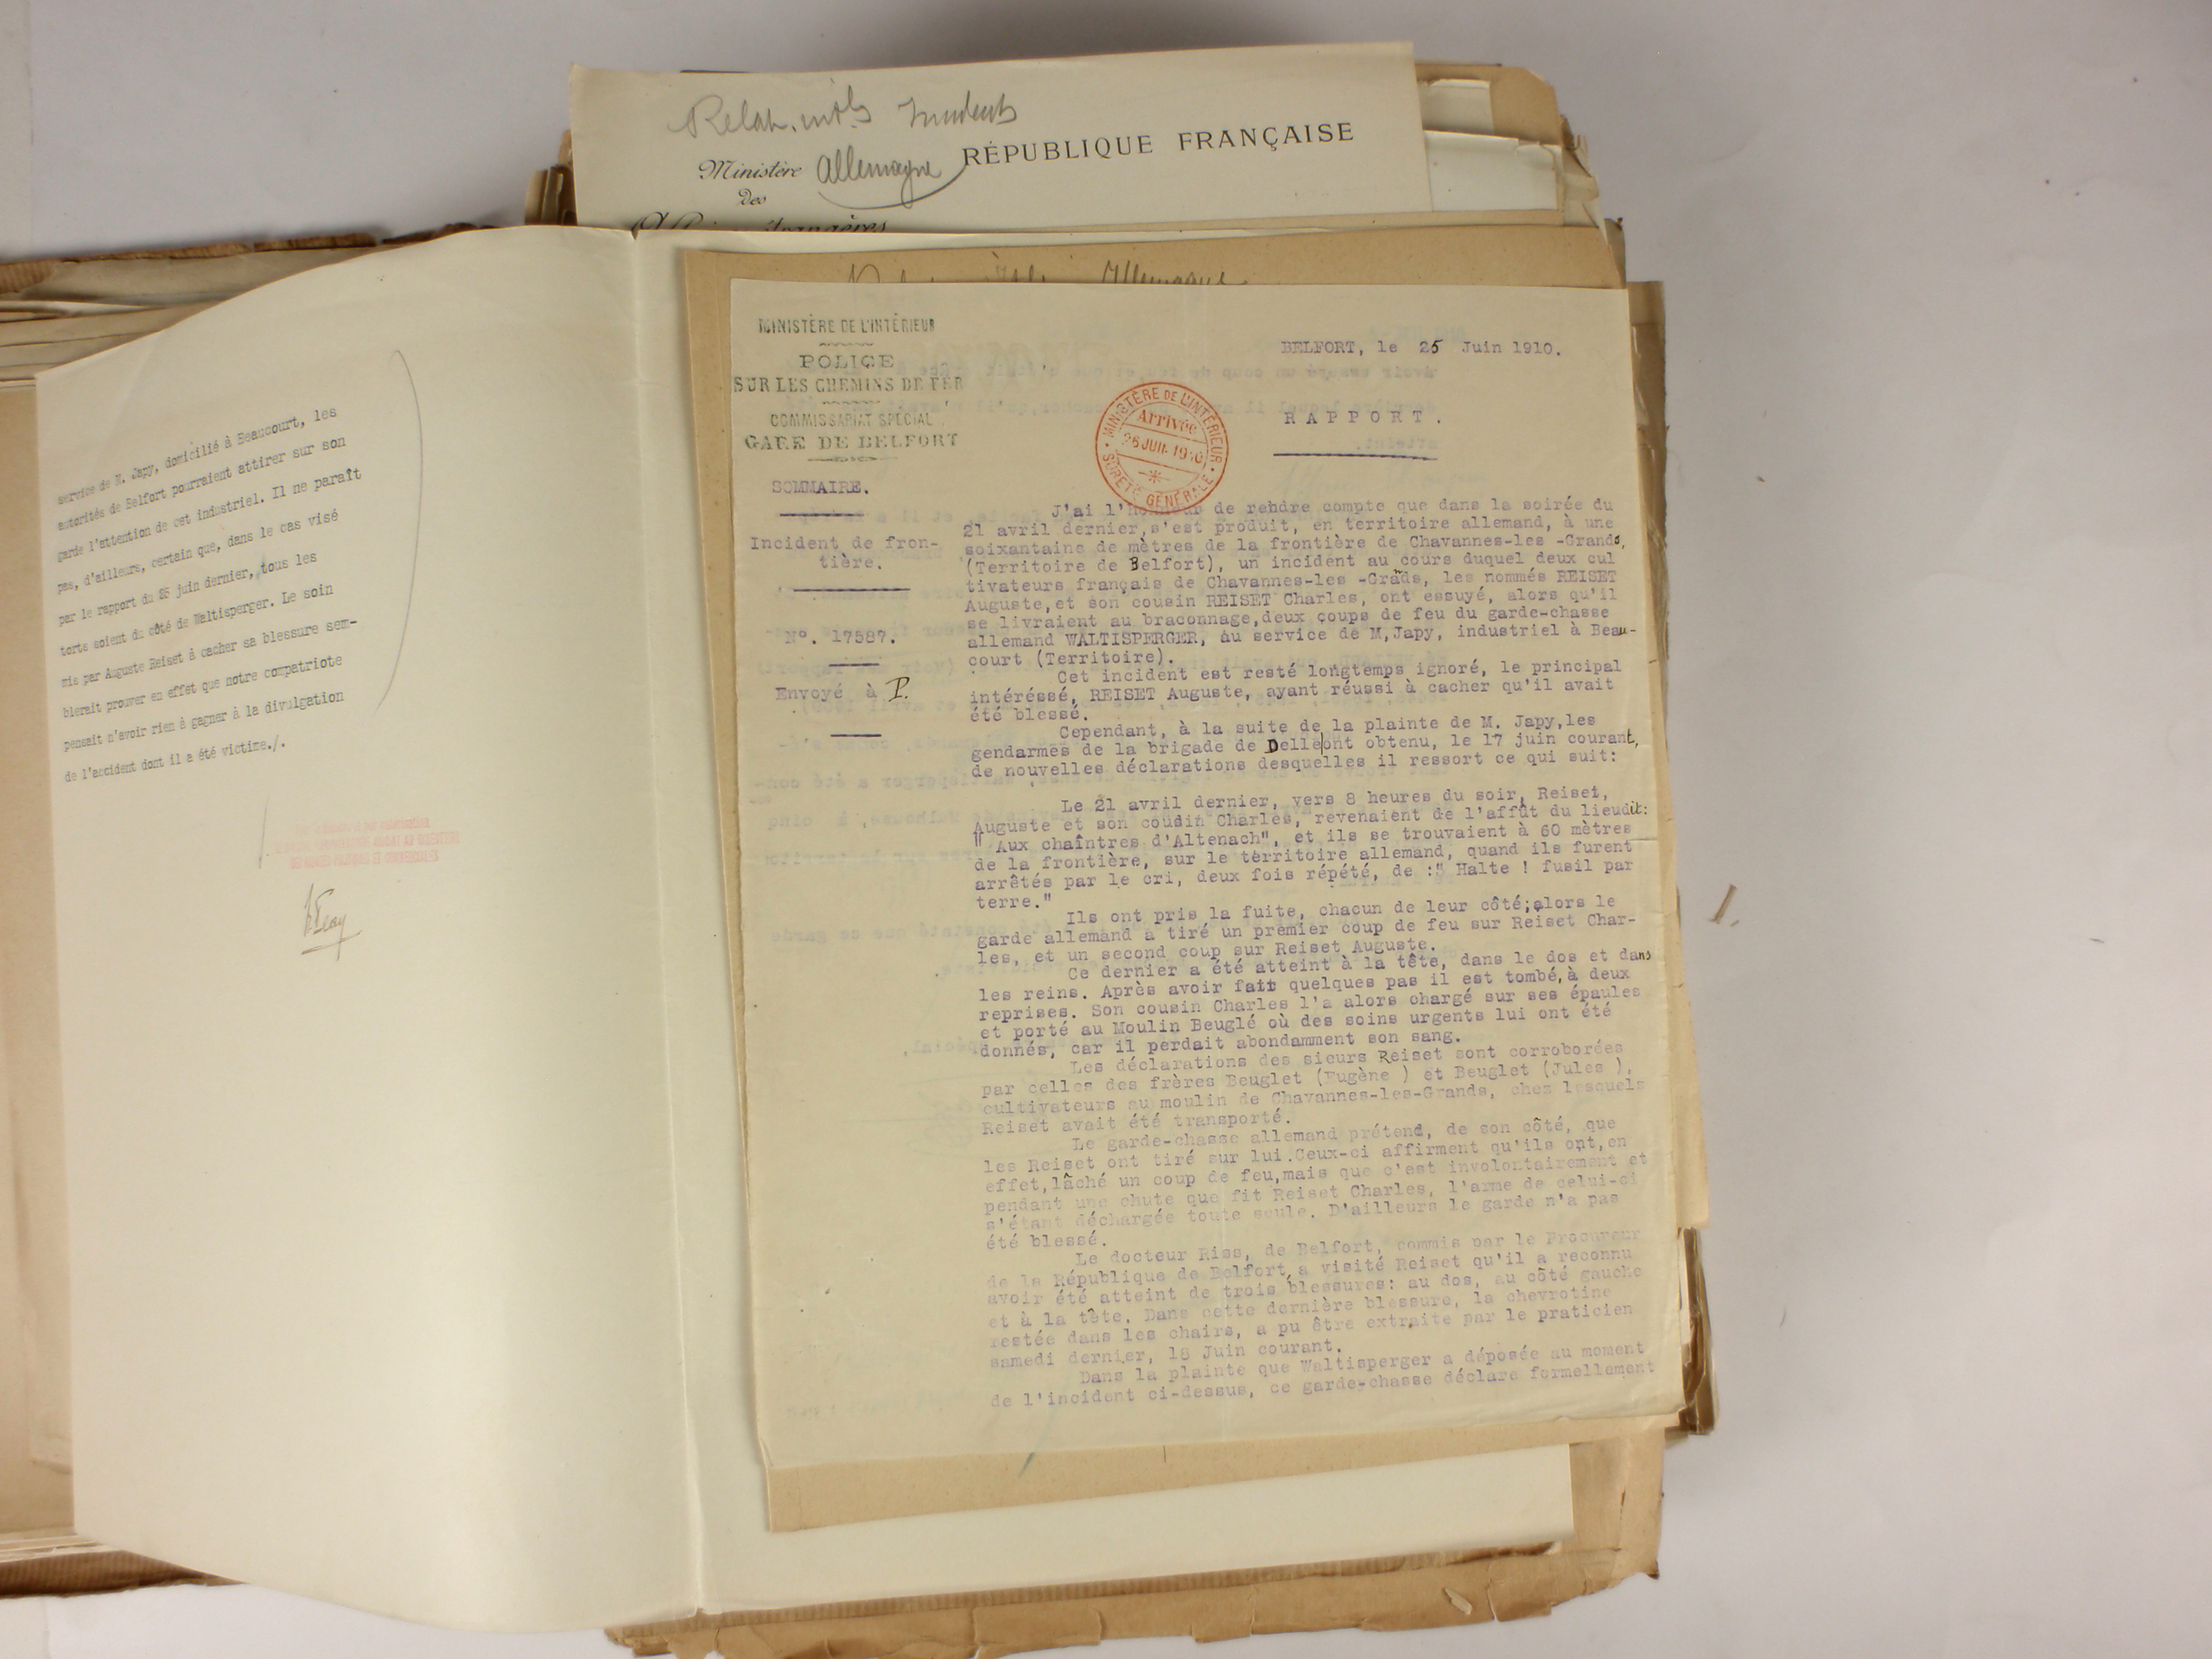 Relat. int.les Incidents
Ministère Allemagne RÉPUBLIQUE FRANÇAISE
des
service de M. Japy, domicilié à Beaucourt, les
autorités de Belfort pourraient attirer sur son
garde l'attention de cet industriel. Il ne paraît
pas, d'ailleurs, certain que, dans le cas visé
par le rapport du 25 juin dernier, tous les
torts soient du côté de Waltisperger. Le soin
mis par Auguste Reiset à cacher sa blessure sem-
blerait prouver en effet que notre compatriote
pensait n'avoir rien à gagner à la divulgation
de l'accident dont il a été victime./.
MINISTÈRE DE L'INTÉRIEUR
POLICE
SUR LES CHEMINS DE FER
COMMISSARIAT SPÉCIAL
GARE DE BELFORT
SOMMAIRE.
Incident de fron-
tière.
N°. 17587.
Envoyé à P.
BELFORT, le 25 Juin 1910.
MINISTÈRE DE L'INTÉRIEUR
Arrivée
26 JUIN 1910
SURETÉ GÉNÉRALE
RAPPORT.
J'ai l'honneur de rendre compte que dans la soirée du
21 avril dernier, s'est produit, en territoire allemand, à une
soixantaine de mètres de la frontière de Chavannes-les -Grands,
(Territoire de Belfort), un incident au cours duquel deux cul
tivateurs français de Chavannes-les -Grands, les nommés REISET
Auguste, et son cousin REISET Charles, ont essuyé, alors qu'il
se livraient au braconnage, deux coups de feu du garde-chasse
allemand WALTISPERGER, au service de M, Japy, industriel à Beau-
court (Territoire).
Cet incident est resté longtemps ignoré, le principal
intéréssé, REISET Auguste, ayant réussi à cacher qu'il avait
été blessé.
Cependant, à la suite de la plainte de M. Japy, les
gendarmes de la brigade de Delle ont obtenu, le 17 juin courant,
de nouvelles déclarations desquelles il ressort ce qui suit:
Le 21 avril dernier, vers 8 heures du soir, Reiset,
Auguste et son cousin Charles, revenaient de l'affût du lieudit:
" Aux chaîntres d'Altenach", et ils se trouvaient à 60 mètres
de la frontière, sur le territoire allemand, quand ils furent
arrêtés par le cri, deux fois répété, de :" Halte ! fusil par
terre."
Ils ont pris la fuite, chacun de leur côté; alors le
garde allemand a tiré un premier coup de feu sur Reiset Char-
les, et un second coup sur Reiset Auguste.
Ce dernier a été atteint à la tête, dans le dos et dans
les reins. Après avoir fait quelques pas il est tombé, à deux
reprises. Son cousin Charles l'a alors chargé sur ses épaules
et porté au Moulin Beuglé où des soins urgents lui ont été
donnés, car il perdait abondamment son sang.
Les déclarations des sieurs Reiset sont corroborées
par celles des frères Beuglet (Eugène ) et Beuglet (Jules ),
cultivateurs au moulin de Chavannes-les-Grands, chez lesquels
Reiset avait été transporté.
Le garde-chasse allemand prétend, de son côté, que
les Reiset ont tiré sur lui. Ceux-ci affirment qu'ils ont, en
effet, lâché un coup de feu, mais que c'est involontairement et
pendant une chute que fit Reiset Charles, l'arme de celui-ci
s'étant déchargée toute seule. D'ailleurs le garde n'a pas
été blessé.
Le docteur Riss, de Belfort, commis par le Procureur
de la République de Belfort, a visité Reiset qu'il a reconnu
avoir été atteint de trois blessures: au dos, au côté gauche
et à la tête. Dans cette dernière blessure, la chevrotine
restée dans les chairs, a pu être extraite par le praticien
samedi dernier, 18 Juin courant.
Dans la plainte que Waltisperger a déposée au moment
de l'incident ci-dessus, ce garde-chasse déclare formellement